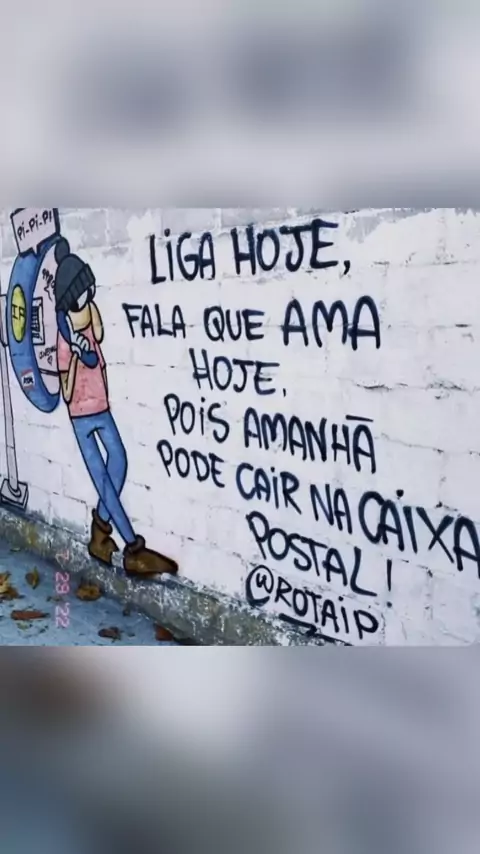 Pi-Pi-Pi
LIGA HOJE,
FALA QUE AMA
HOJE,
POIS AMANHÃ
PODE CAIR NA CAIXA
POSTAL!
@ROTAIP
7 29 '22